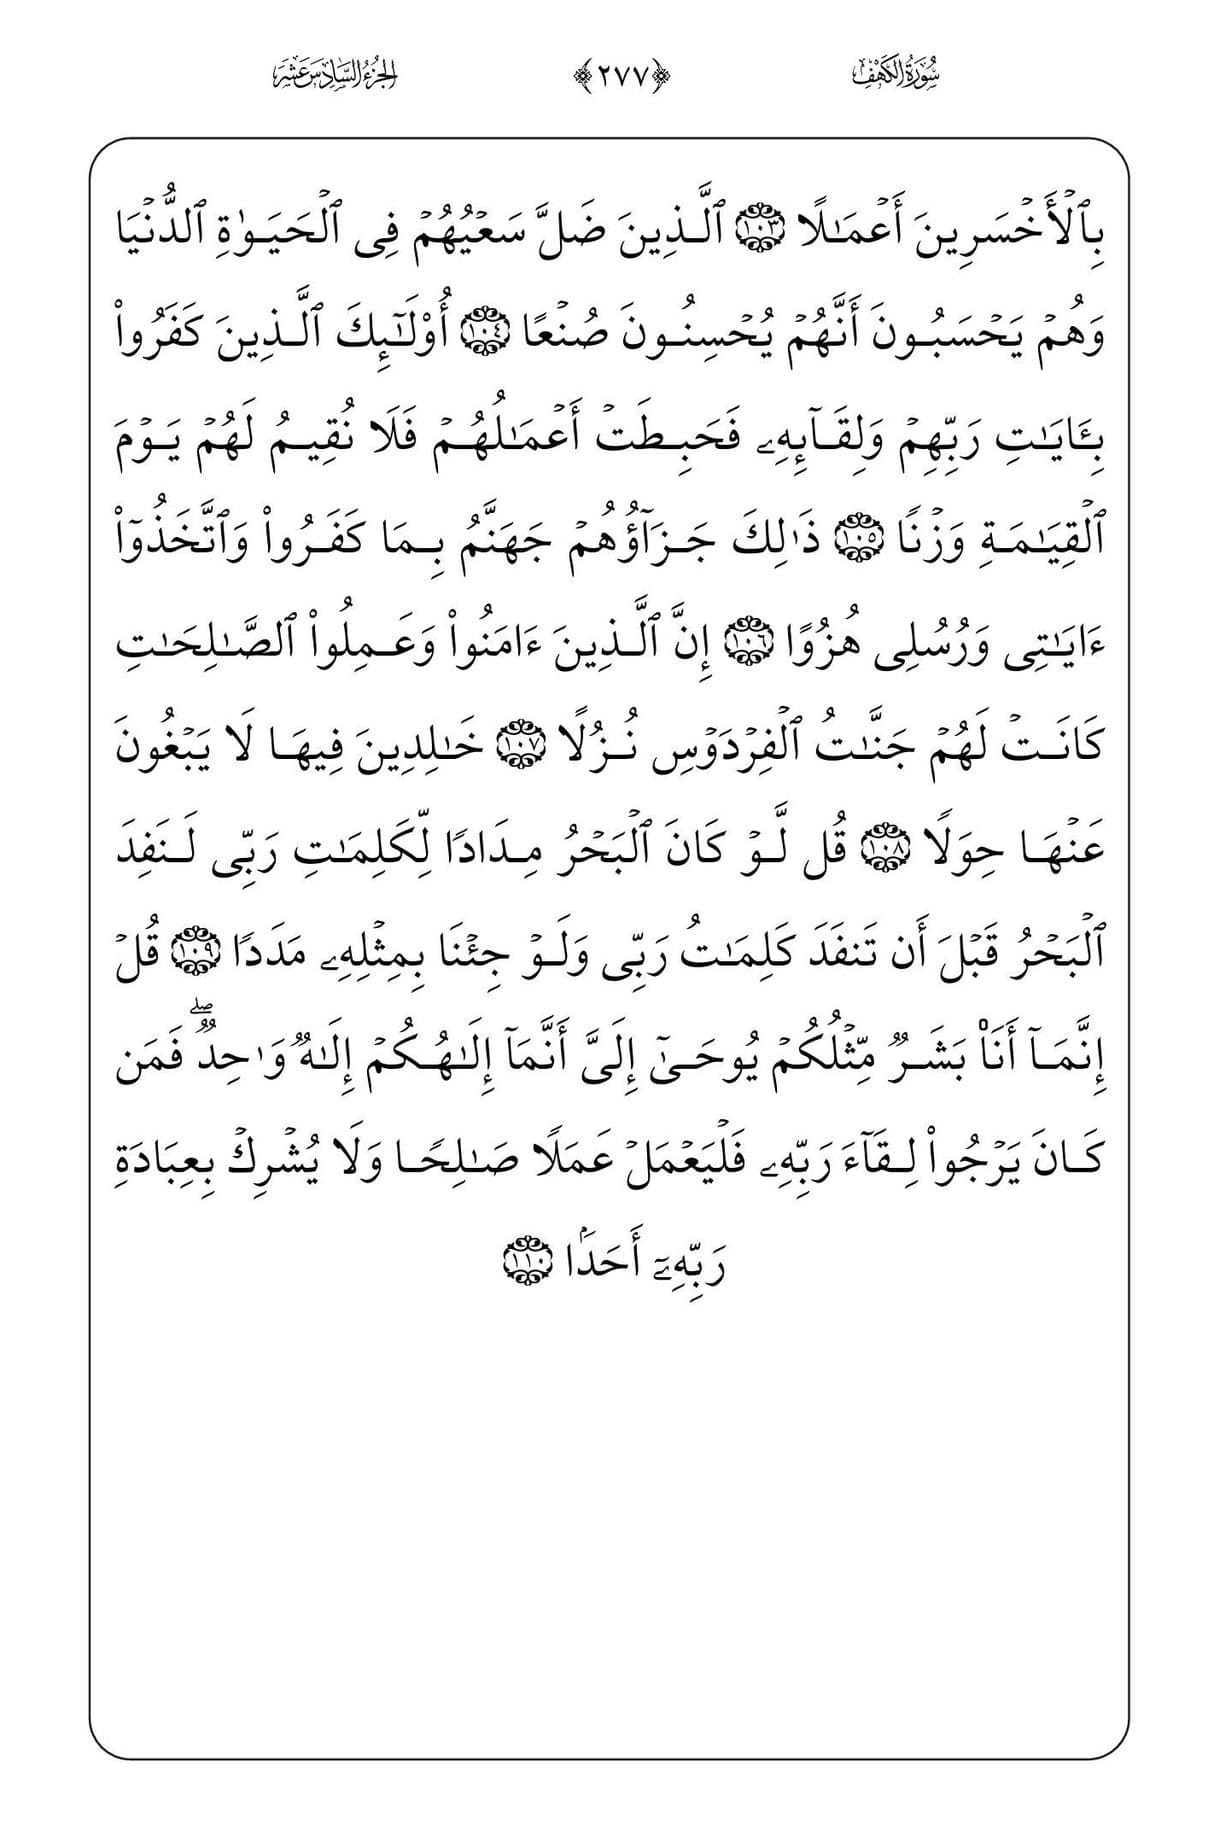 سُورَةُ الكَهْفِ ﴿٢٧٧﴾ الجُزْءُ السَّادِسَ عَشَرَ
بِٱلۡأَخۡسَرِينَ أَعۡمَٰلًا ١٠٣ ٱلَّذِينَ ضَلَّ سَعۡيُهُمۡ فِي ٱلۡحَيَوٰةِ ٱلدُّنۡيَا
وَهُمۡ يَحۡسَبُونَ أَنَّهُمۡ يُحۡسِنُونَ صُنۡعًا ١٠٤ أُوْلَٰٓئِكَ ٱلَّذِينَ كَفَرُواْ
بِـَٔايَٰتِ رَبِّهِمۡ وَلِقَآئِهِۦ فَحَبِطَتۡ أَعۡمَٰلُهُمۡ فَلَا نُقِيمُ لَهُمۡ يَوۡمَ
ٱلۡقِيَٰمَةِ وَزۡنًا ١٠٥ ذَٰلِكَ جَزَآؤُهُمۡ جَهَنَّمُ بِمَا كَفَرُواْ وَٱتَّخَذُوٓاْ
ءَايَٰتِي وَرُسُلِي هُزُوًا ١٠٦ إِنَّ ٱلَّذِينَ ءَامَنُواْ وَعَمِلُواْ ٱلصَّٰلِحَٰتِ
كَانَتۡ لَهُمۡ جَنَّٰتُ ٱلۡفِرۡدَوۡسِ نُزُلًا ١٠٧ خَٰلِدِينَ فِيهَا لَا يَبۡغُونَ
عَنۡهَا حِوَلًا ١٠٨ قُل لَّوۡ كَانَ ٱلۡبَحۡرُ مِدَادًا لِّكَلِمَٰتِ رَبِّي لَنَفِدَ
ٱلۡبَحۡرُ قَبۡلَ أَن تَنفَدَ كَلِمَٰتُ رَبِّي وَلَوۡ جِئۡنَا بِمِثۡلِهِۦ مَدَدًا ١٠٩ قُلۡ
إِنَّمَآ أَنَا۠ بَشَرٌ مِّثۡلُكُمۡ يُوحَىٰٓ إِلَيَّ أَنَّمَآ إِلَٰهُكُمۡ إِلَٰهٌ وَٰحِدٌۖ فَمَن
كَانَ يَرۡجُواْ لِقَآءَ رَبِّهِۦ فَلۡيَعۡمَلۡ عَمَلًا صَٰلِحًا وَلَا يُشۡرِكۡ بِعِبَادَةِ
رَبِّهِۦٓ أَحَدَۢا ١١٠